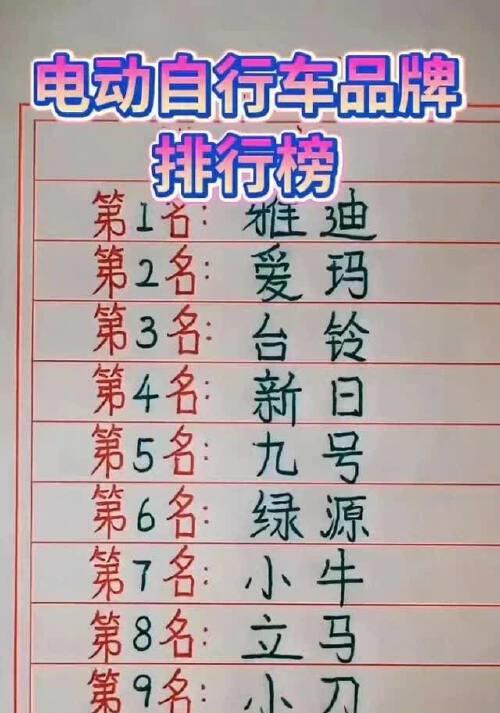 电动自行车品牌
排行榜
第1名:雅迪
第2名:爱玛
第3名:台铃
第4名:新日
第5名:九号
第6名:绿源
第7名:小牛
第8名:立马
第9名:小刀